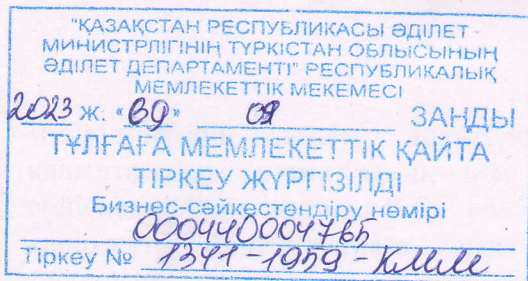 "ҚАЗАҚСТАН РЕСПУБЛИКАСЫ ӘДІЛЕТ
МИНИСТРЛІГІНІҢ ТҮРКІСТАН ОБЛЫСЫНЫҢ
ӘДІЛЕТ ДЕПАРТАМЕНТІ" РЕСПУБЛИКАЛЫҚ
МЕМЛЕКЕТТІК МЕКЕМЕСІ
2023 ж. «09» 09 ЗАҢДЫ
ТҰЛҒАҒА МЕМЛЕКЕТТІК ҚАЙТА
ТІРКЕУ ЖҮРГІЗІЛДІ
Бизнес-сәйкестендіру нөмірі
000440004765
Тіркеу № 1341-1959-КММ